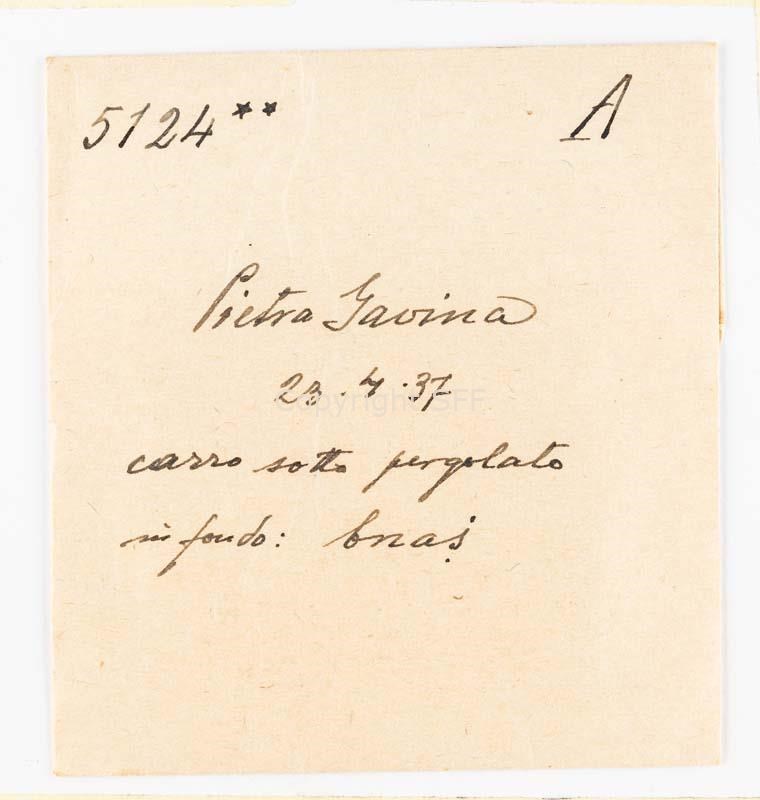 5124** A
Pietra Gavina
23.4.37
Copyright SFF
carro sotto pergolato
in fondo: